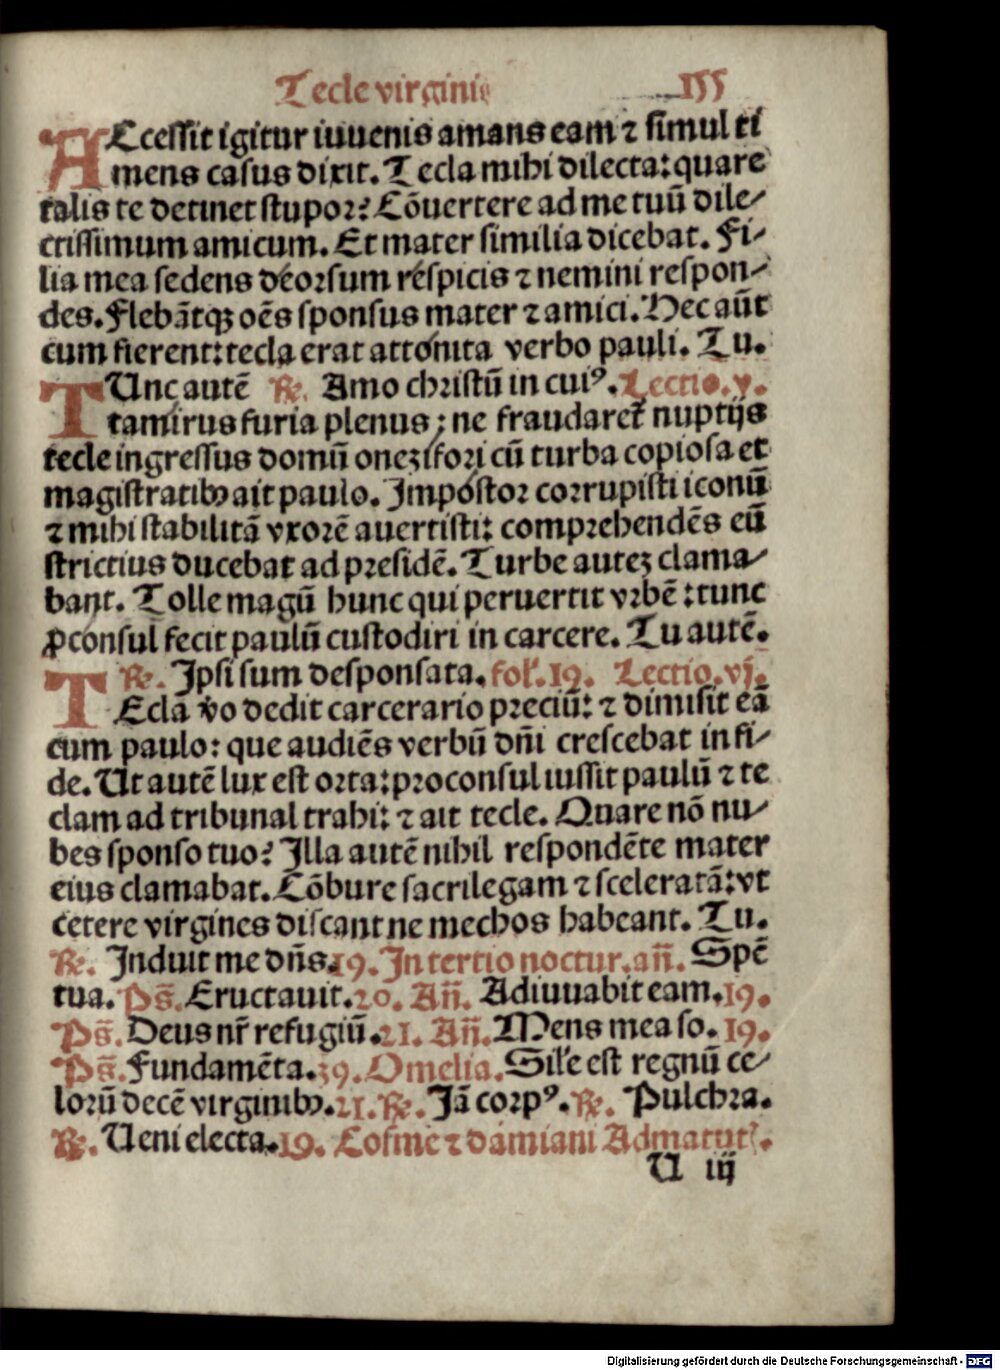 Tecle virginis 155
ACcessit igitur iuuenis amans eam ⁊ simul ti
mens casus dixit. Tecla mihi dilecta: quare
talis te detinet stupor? Cōuertere ad me tuū dile⸗
ctissimum amicum. Et mater similia dicebat. Fi⸗
lia mea sedens deorsum respicis ⁊ nemini respon⸗
des. Flebātqꝫ oēs sponsus mater ⁊ amici. Hec aūt
cum fierent: tecla erat attonita verbo pauli. Tu.
TUnc autē ℟. Amo christū in cuiꝰ. Lectio. v.
tamirus furia plenus; ne fraudaret nuptijs
tecle ingressus domū onezifori cū turba copiosa et
magistratibꝰ ait paulo. Impostor corrupisti iconiū
⁊ mihi stabilitā vxorē auertisti: comprehendēs eū
strictius ducebat ad presidē. Turbe autez clama⸗
bant. Tolle magū hunc qui peruertit vrbē: tunc
ꝓconsul fecit paulū custodiri in carcere. Tu autē.
℟. Ipsi sum desponsata. fol. 19. Lectio. vj.
TEcla v̄o dedit carcerario preciū: ⁊ dimisit eā
cum paulo: que audiēs verbū dn̄i crescebat in fi⸗
de. Ut autē lux est orta: proconsul iussit paulū ⁊ te
clam ad tribunal trahi: ⁊ ait tecle. Quare nō nu⸗
bes sponso tuo? Illa autē nihil respondēte mater
eius clamabat. Cōbure sacrilegam ⁊ sceleratā: vt
cetere virgines discant ne mechos habeant. Tu.
℟. Induit me dn̄s. 19. In tertio noctur. an̄. Spē
tua. Ps̄. Eructauit. 20. An̄. Adiuuabit eam. 19.
Ps̄. Deus nr̄ refugiū. 21. An̄. Mens mea so. 19.
Ps̄. Fundamēta. 39. Omelia. Sile est regnū ce⸗
lorū decē virginibꝰ. 21. ℟. Jā corpꝰ. ℟. Pulchra.
℟. Ueni electa. 19. Cosme ⁊ damiani Ad matut.
U iij
Digitalisierung gefördert durch die Deutsche Forschungsgemeinschaft - DFG